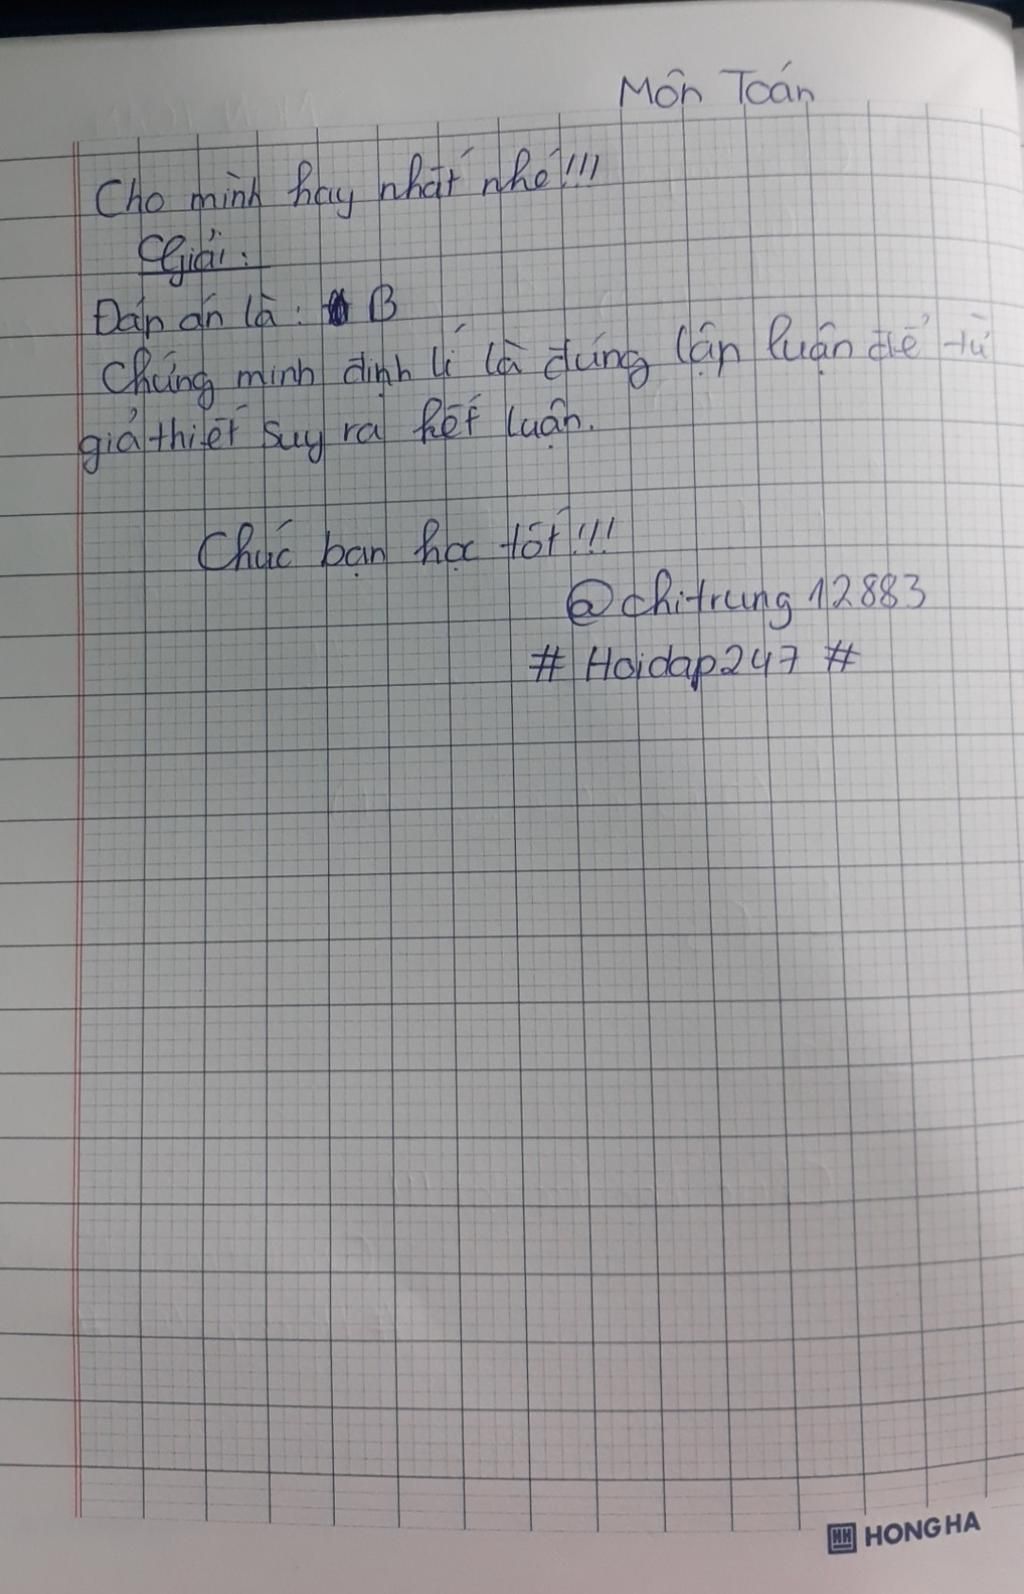 Môn Toán
Cho mình hay nhất nhé!!!
Giải:
Đáp án là: B
Chứng minh định lí là dúng lập luận để từ
giả thiết suy ra kết luận.
Chúc bạn học tốt!!!
@chitrung12883
# Hoidap247 #
HH HONG HA